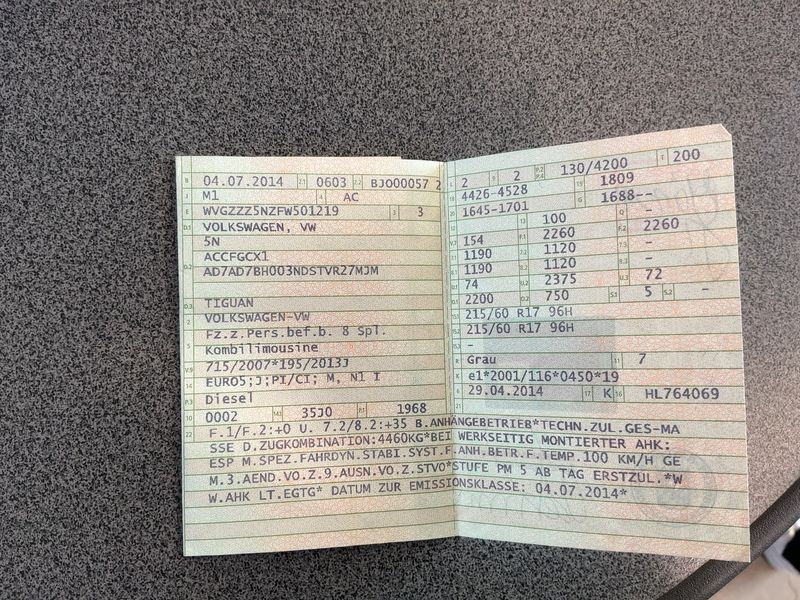 B 04.07.2014 2.1 0603 2.2 BJO00057 2
J M1 4 AC
E WVGZZZ5NZFW501219 3 3
D.1 VOLKSWAGEN, VW
5N
D.2 ACCFGCX1
AD7AD7BH003NDSTVR27MJM
D.3 TIGUAN
2 VOLKSWAGEN-VW
5 Fz.z.Pers.bef.b. 8 Spl.
Kombilimousine
V.9 715/2007*195/2013J
14 EURO5;J;PI/CI; M, N1 I
P.3 Diesel
10 0002 14.1 35J0 P.1 1968
L 2 9 2 P.2 P.4 130/4200 T 200
18 4426-4528 19 1809
20 1645-1701 G 1688--
12 - 13 100 Q -
V.7 154 F.1 2260 F.2 2260
7.1 1190 7.2 1120 7.3 -
8.1 1190 8.2 1120 8.3 -
U.1 74 U.2 2375 U.3 72
O.1 2200 O.2 750 S.1 5 S.2 -
15.1 215/60 R17 96H
15.2 215/60 R17 96H
15.3 -
R Grau 11 7
K e1*2001/116*0450*19
6 29.04.2014 17 K 16 HL764069
21
22 F.1/F.2:+0 U. 7.2/8.2:+35 B.ANHÄNGEBETRIEB*TECHN.ZUL.GES-MA
SSE D.ZUGKOMBINATION:4460KG*BEI WERKSEITIG MONTIERTER AHK:
ESP M.SPEZ.FAHRDYN.STABI.SYST.F.ANH.BETR.F.TEMP.100 KM/H GE
M.3.AEND.VO.Z.9.AUSN.VO.Z.STVO*STUFE PM 5 AB TAG ERSTZUL.*W
W.AHK LT.EGTG* DATUM ZUR EMISSIONSKLASSE: 04.07.2014*